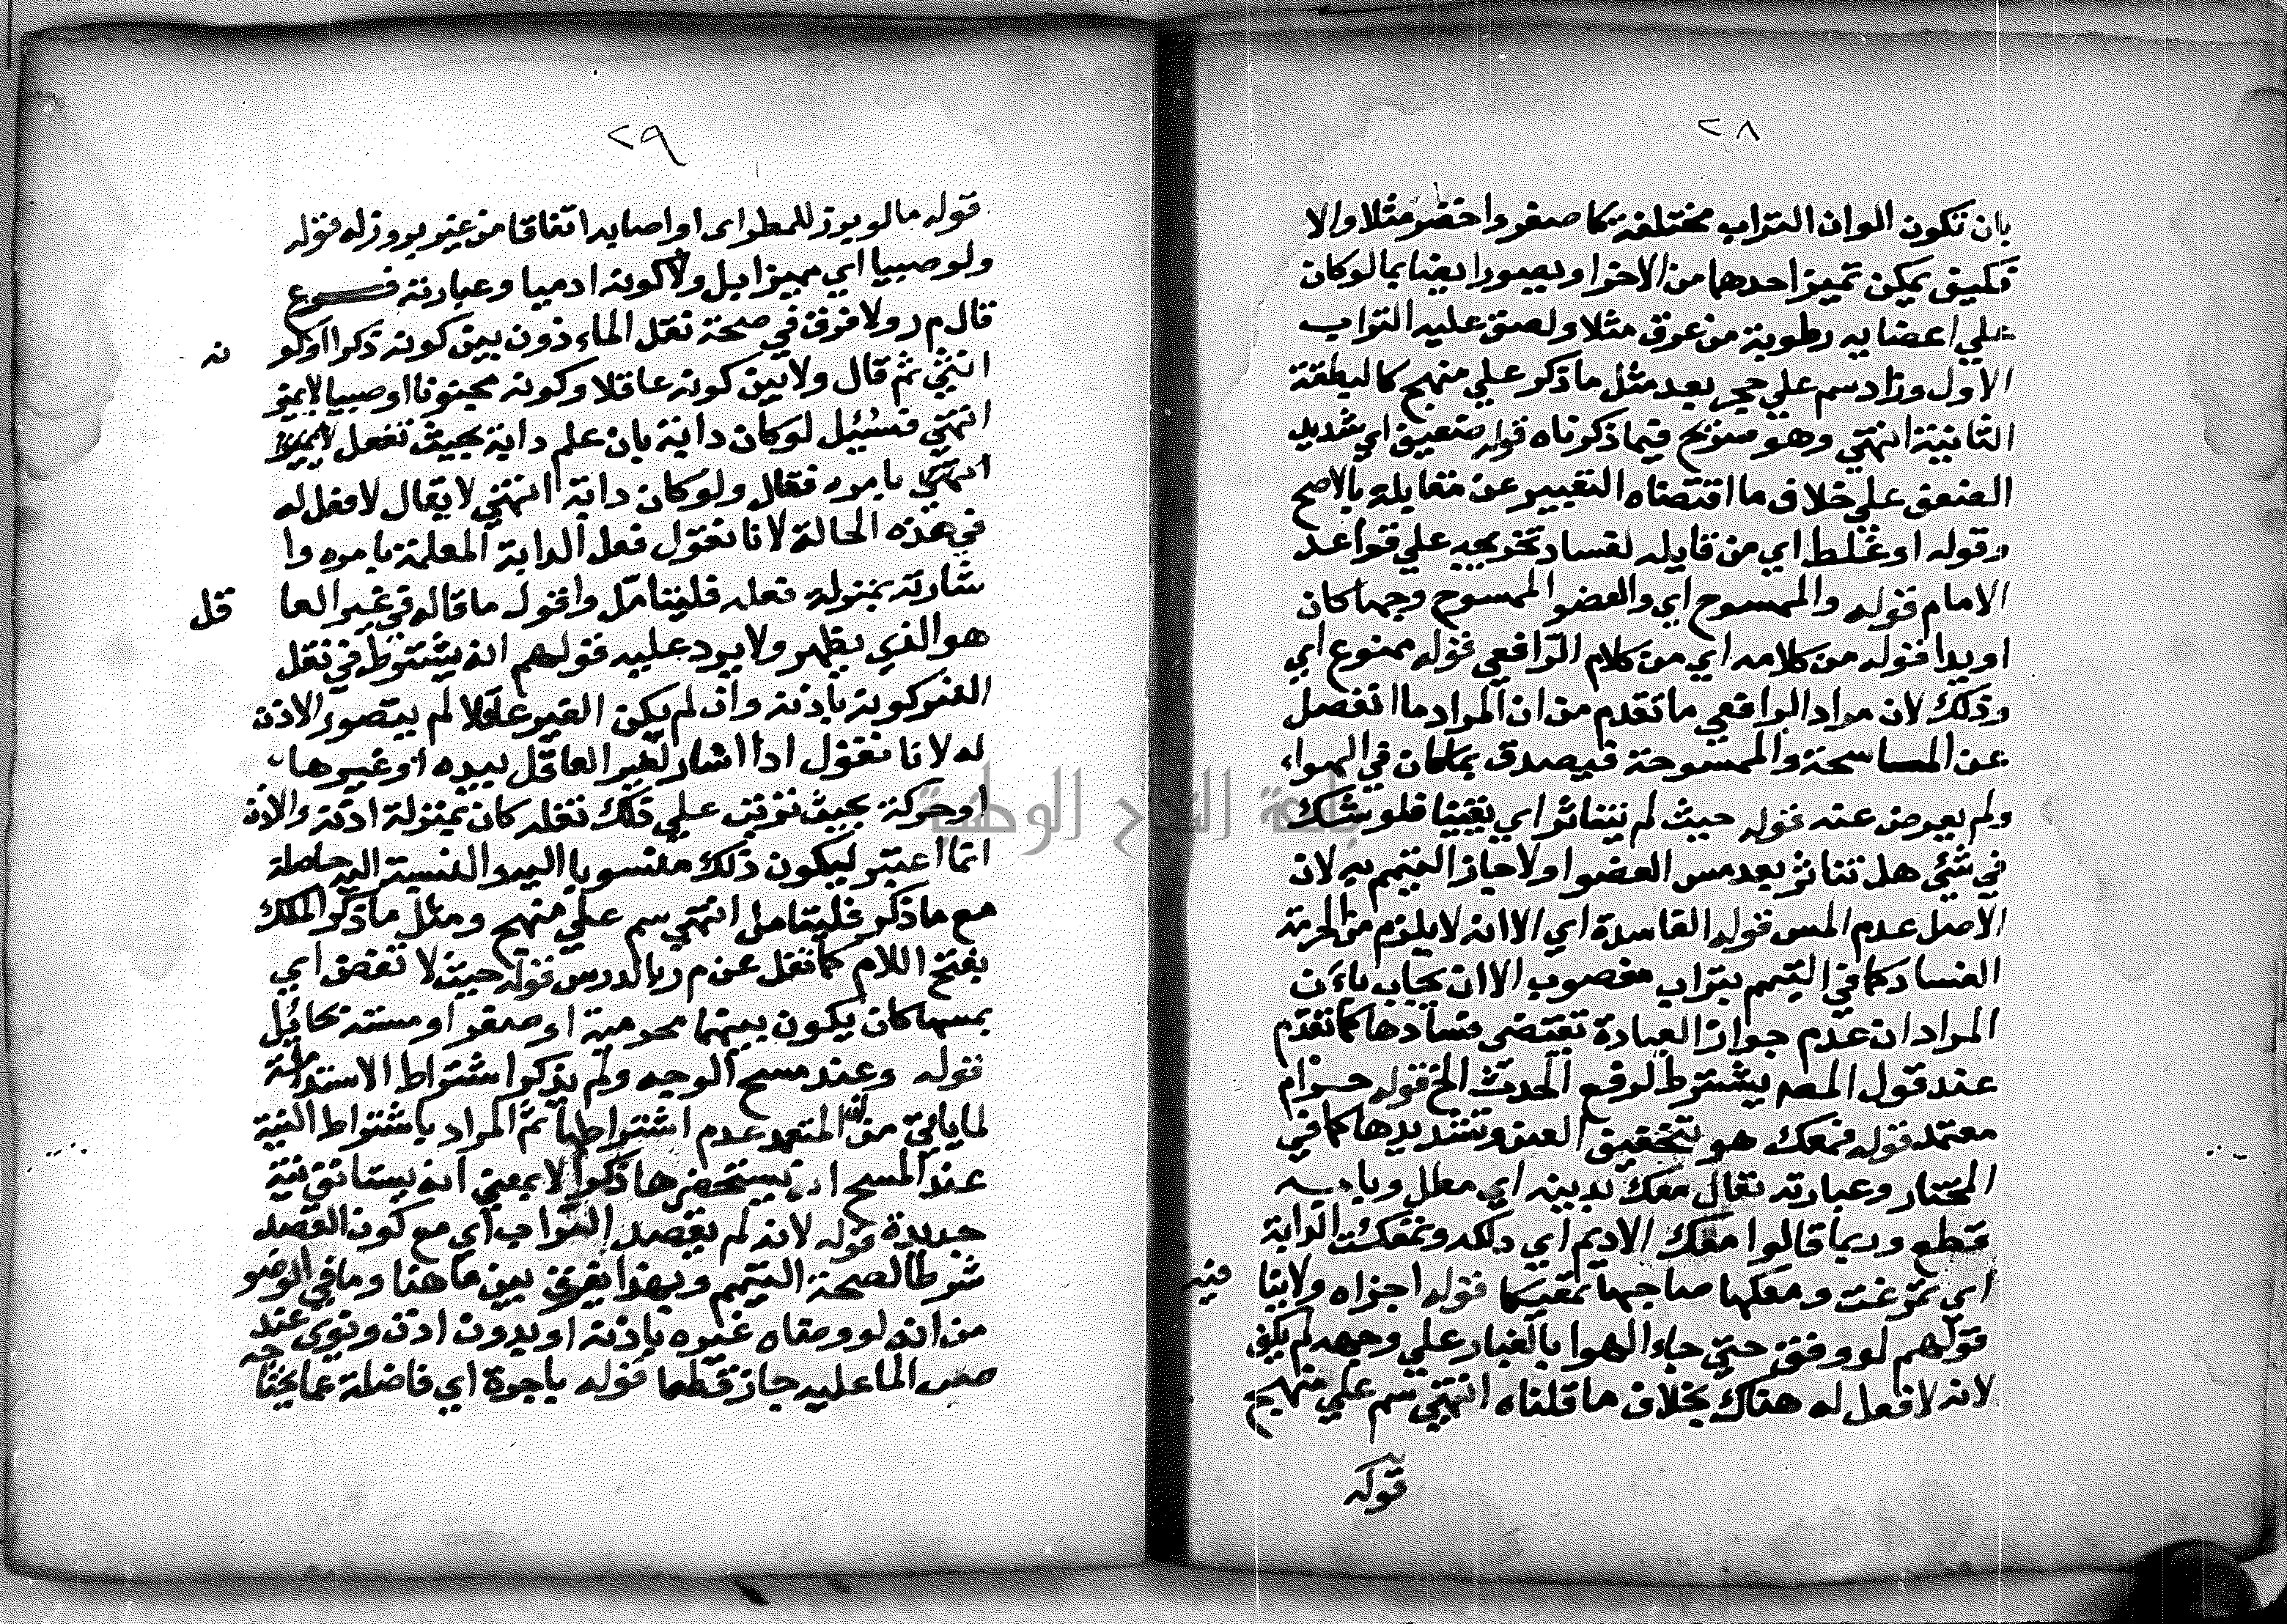 ٢٨
بان تكون الوان التراب مختلفة كاصفر واخضر مثلا والا
فكيف يمكن تميز احدهما من الاخر او يصور ايضا بما لو كان
علي اعضايه رطوبة من عرق مثلا ولصق عليه التراب
الاول وزاد سم علي حجر بعد مثل ما ذكر علي منهج كالطبقة
الثانية انتهي وهو صريح فيما ذكرناه قوله ضعيف اي شديد
الضعف علي خلاف ما اقتضاه التعبير عن مقابله بالاصح
وقوله او غلط اي من قايله لفساد تخريجه علي قواعد
الامام قوله والممسوح اي والعضو الممسوح وجها كان
او يدا قوله من كلامه اي من كلام الرافعي قوله ممنوع اي
وذلك لان مراد الرافعي ما تقدم من ان المراد ما انفصل
عن الماسحة والممسوحة فيصدق بما كان في الهواء
ولم يعرض عنه قوله حيث لم يتناثر اي يقينا فلو شك
في شئ هل تناثر بعد مس العضو اولا جاز التيمم به لان
الاصل عدم المس قوله الفاسدة اي الا انه لا يلزم من الحرمة
الفساد كما في التيمم بتراب مغصوب الا ان يجاب بان
المراد ان عدم جواز العبادة تقتضي فسادها كما تقدم
عند قول المصه يشترط لرفع الحدث الخ قوله حرام
معتمد قوله فمعك هو بتخفيف العين وتشديدها كما في
المختار وعبارته تقال معك بدينه اي مطل وبابه
قطع وربما قالوا معك الاديم اي دلكه وتمعكت الدابة
اي تمرغت ومعكها صاحبها تمعيكا قوله اجزاه ولا ينا فيه
قولهم لو وقف حتي جاء الهوا بالغبار علي وجهه لم يكف
لانه لا فعل له هناك بخلاف ما قلناه انتهي سم علي منهج
قوله
٢٩
قوله ما لو برز للمطر اي او اصابه اتفاقا من غير بروز له قوله
ولو صبيا اي مميزا بل ولا كونه ادميا وعبارته فرع
قال م ر ولا فرق في صحة نقل الماء ذون بين كونه ذكرا اوكو نه
انثي ثم قال ولا بين كونه عاقلا وكونه مجنونا او صبيا لا يميز
انتهي فسئل لو كان دابة بان علم دابة بحيث تفعل
انتهي بامره فقال ولو كان دابة انتهي لا يقال لا فعل له
في هذه الحالة لانا نقول فعل الدابة المعلمة بامره وا
شارته بمنزلة فعله فليتامل واقول ما قاله في غير العا قل
هو الذي يظهر ولا يرد عليه قولهم انه يشترط في نقل
الغير كونه باذنه وان لم يكن الغير عاقلا لم يتصور الاذن
له لانا نقول اذا اشار لغير العاقل بيده او غيرها
او حركه بحيث ترتب علي ذلك نقله كان بمنزلة اذنه والاذن
انما اعتبر ليكون ذلك منسوبا اليه والنسبة اليه حاصلة
مع ما ذكر فليتامل انتهي سم علي منهج ومثل ما ذكر الملك
بفتح اللام كما نقل عن م ر بالدرس قوله حيث لا نقض اي
بمسها كان يكون بينهما محرمية او صغر او مسته بحايل
قوله وعند مسح الوجه ولم يذكر اشتراط الاستدامة
لما ياتي من ان المتعمد عدم اشتراطها ثم المراد باشتراط النية
عند المسح ان يستحضرها ذكرا لا بمعني انه يستانف نية
جديدة قوله لانه لم يقصد التراب اي مع كون القصد
شرطا لصحة التيمم وبهذا يفرق بين ما هنا وما في الوضو
من انه لو وضاه غيره باذنه او بدون اذن ونوي عند
صب الما عليه جاز قطعا قوله باجرة اي فاضلة عما يحتاجه